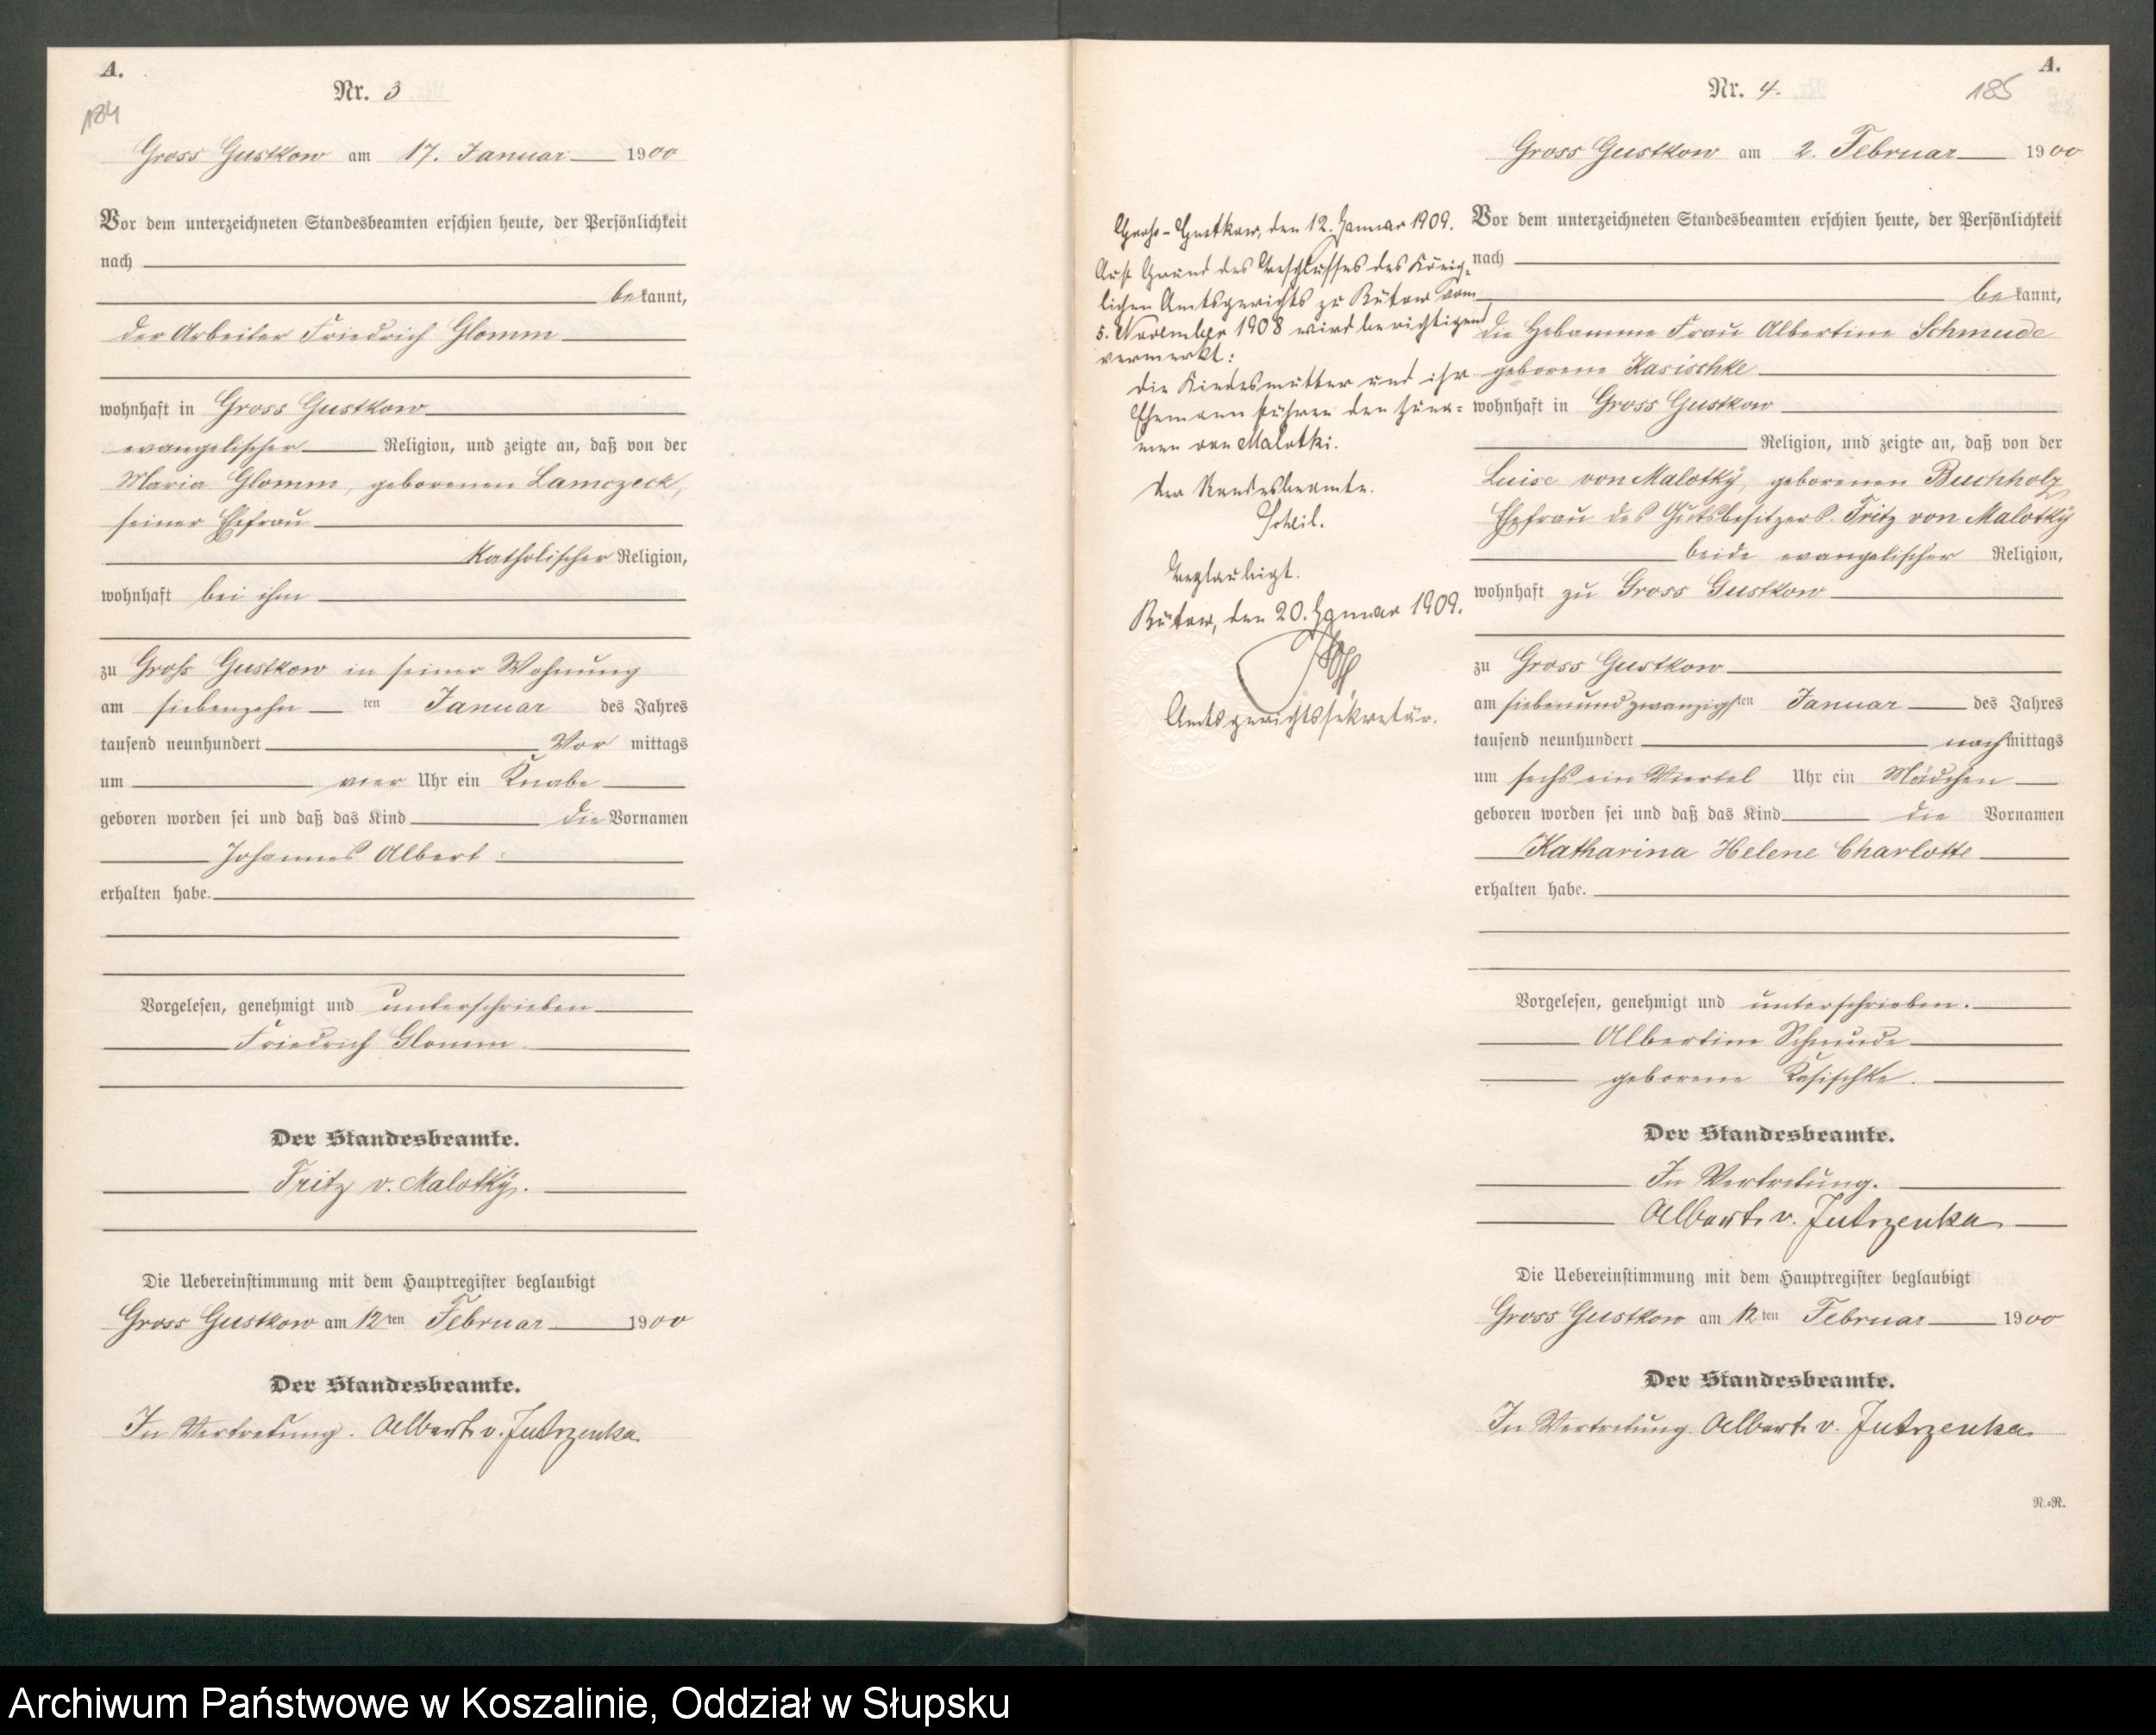 A.
184
Nr. 3
Gross Gustkow am 17. Januar 1900
Vor dem unterzeichneten Standesbeamten erschien heute, der Persönlichkeit
nach
bekannt,
der Arbeiter Friedrich Glomm
wohnhaft in Gross Gustkow
evangelischer Religion, und zeigte an, daß von der
Maria Glomm, geborenen Lamczeck,
seiner Ehefrau
katholischer Religion,
wohnhaft bei ihm
zu Groß Gustkow in seiner Wohnung
am siebenzehn ten Januar des Jahres
tausend neunhundert Vor mittags
um vier Uhr ein Knabe
geboren worden sei und daß das Kind die Vornamen
Johannes Albert
erhalten habe.
Vorgelesen, genehmigt und unterschrieben
Friedrich Glomm.
Der Standesbeamte.
Fritz v. Malotky.
Die Uebereinstimmung mit dem Hauptregister beglaubigt
Gross Gustkow am 12ten Februar 1900
Der Standesbeamte.
In Vertretung. Albert v. Jutrzenka
A.
185
Nr. 4.
Gross Gustkow am 2. Februar 1900
Groß-Gustkow, den 12. Januar 1909.
Auf Grund des Beschlusses des König-
lichen Amtsgerichts zu Bütow vom
5. November 1908 wird berichtigend
vermerkt:
die Kindesmutter und ihr
Ehemann führen den Zuna-
men von Malotki.
Der Standesbeamte.
Beglaubigt.
Bütow, den 20. Januar 1909.
Amtsgerichtssekretär.
Vor dem unterzeichneten Standesbeamten erschien heute, der Persönlichkeit
nach
bekannt,
die Hebamme Frau Albertine Schmude
geborene Kasischke
wohnhaft in Gross Gustkow
Religion, und zeigte an, daß von der
Luise von Malotky, geborenen Buchholz
Ehefrau des Gutsbesitzers Fritz von Malotky
beide evangelischer Religion,
wohnhaft zu Gross Gustkow
zu Gross Gustkow
am siebenundzwanzigsten Januar des Jahres
tausend neunhundert nachmittags
um sechs ein Viertel Uhr ein Mädchen
geboren worden sei und daß das Kind die Vornamen
Katharina Helene Charlotte
erhalten habe.
Vorgelesen, genehmigt und unterschrieben.
Albertine Schmude
geborene Kasischke.
Der Standesbeamte.
In Vertretung.
Albert v. Jutrzenka
Die Uebereinstimmung mit dem Hauptregister beglaubigt
Gross Gustkow am 12ten Februar 1900
Der Standesbeamte.
In Vertretung Albert v. Jutrzenka
N.=R.
Archiwum Państwowe w Koszalinie, Oddział w Słupsku